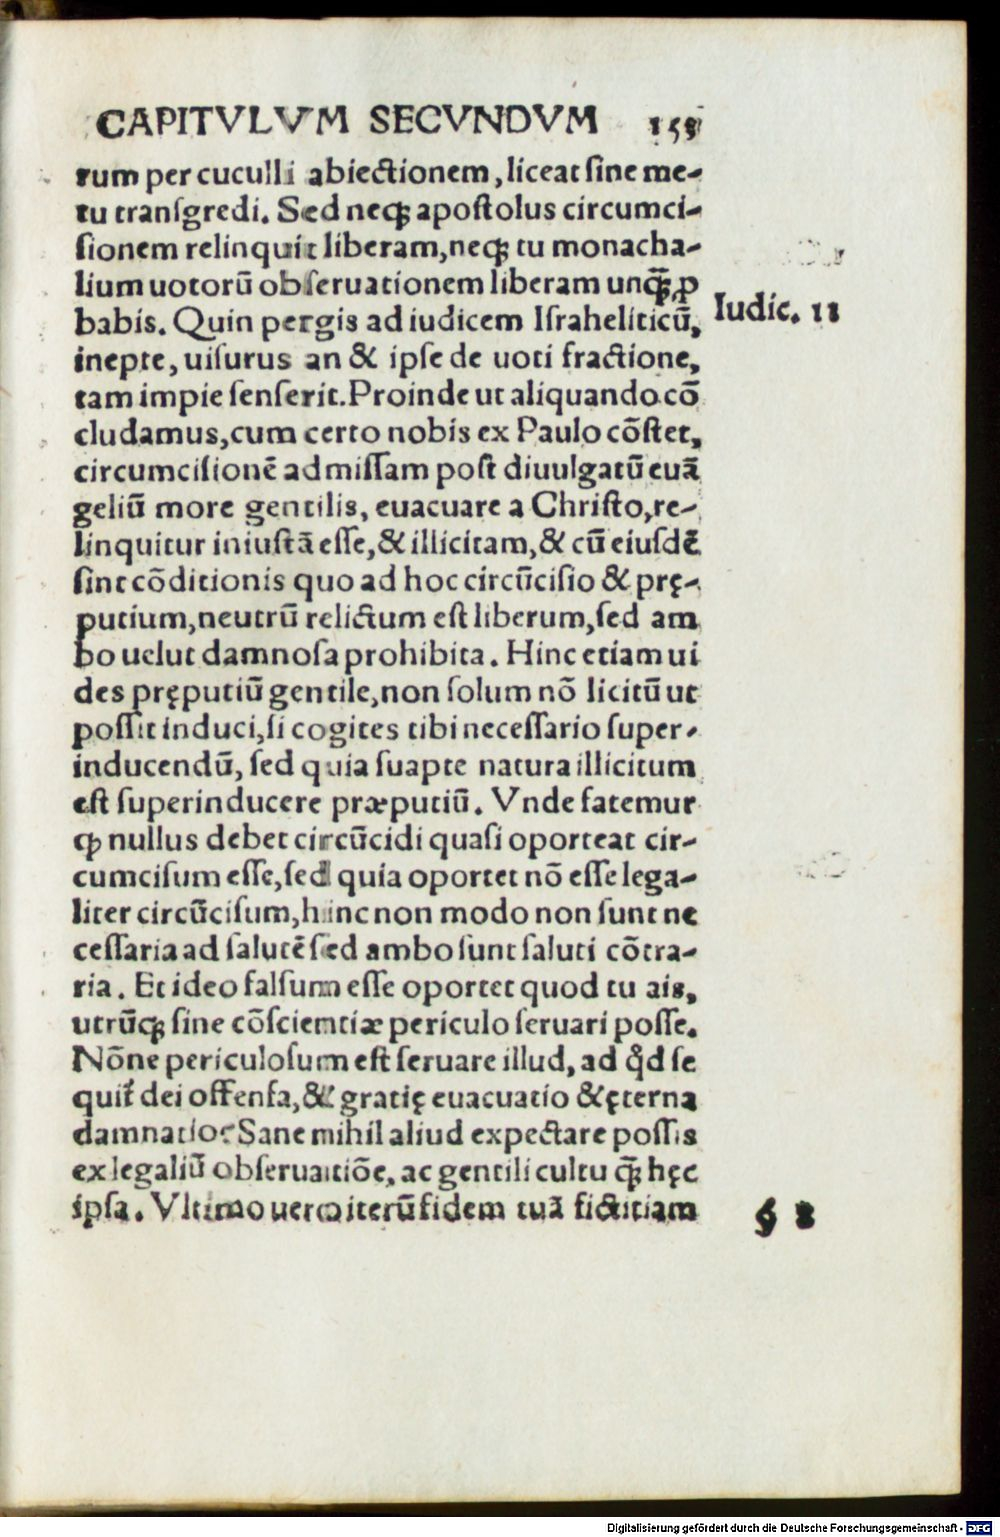 CAPITVLVM SECVNDVM 159
rum per cuculli abiectionem, liceat ſine me-
tu tranſgredi. Sed neqꝫ apoſtolus circumci-
ſionem relinquit liberam, neqꝫ tu monacha-
lium uotorū obſeruationem liberam unqꝫ̄ ꝓ
babis. Quin pergis ad iudicem Iſraheliticū,
Iudic. 11
inepte, uiſurus an & ipſe de uoti fractione,
tam impie ſenſerit. Proinde ut aliquando cō
cludamus, cum certo nobis ex Paulo cōſtet,
circumciſionē admiſſam poſt diuulgatū euā
geliū more gentilis, euacuare a Chriſto, re-
linquitur iniuſtā eſſe, & illicitam, & cū eiuſdē
ſint cōditionis quo ad hoc circūciſio & prę-
putium, neutrū relictum eſt liberum, ſed am
bo uelut damnoſa prohibita. Hinc etiam ui
des pręputiū gentile, non ſolum nō licitū ut
poſſit induci, ſi cogites tibi neceſſario ſuper-
inducendū, ſed quia ſuapte natura illicitum
eſt ſuperinducere præputiū. Vnde fatemur
qꝫ nullus debet circūcidi quaſi oporteat cir-
cumciſum eſſe, ſed quia oportet nō eſſe lega-
liter circūciſum, hinc non modo non ſunt ne
ceſſaria ad ſalutē ſed ambo ſunt ſaluti cōtra-
ria. Et ideo falſum eſſe oportet quod tu ais,
utrūqꝫ ſine cōſcientiæ periculo ſeruari poſſe.
Nōne periculoſum eſt ſeruare illud, ad qͦd ſe
quit᷑ dei offenſa, & gratię euacuatio & ęterna
damnatio? Sane mihil aliud expectare poſſis
ex legaliū obſeruatiōe, ac gentili cultu qꝫ̄ hęc
ipſa. Vltimo uero iterū fidem tuā fictitiam
§ 8
Digitalisierung gefördert durch die Deutsche Forschungsgemeinschaft - DFG